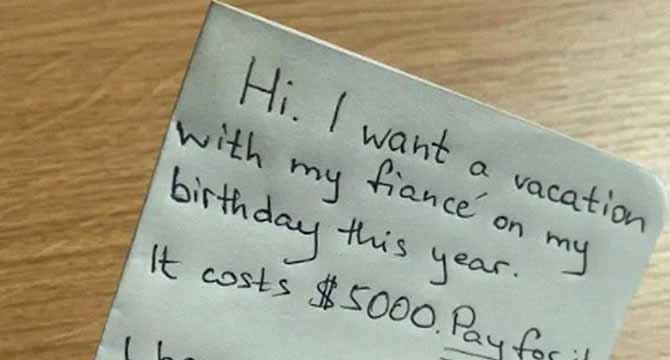 Hi. I want a vacation
with my fiancé on my
birthday this year.
It costs $5000. Pay for it
I